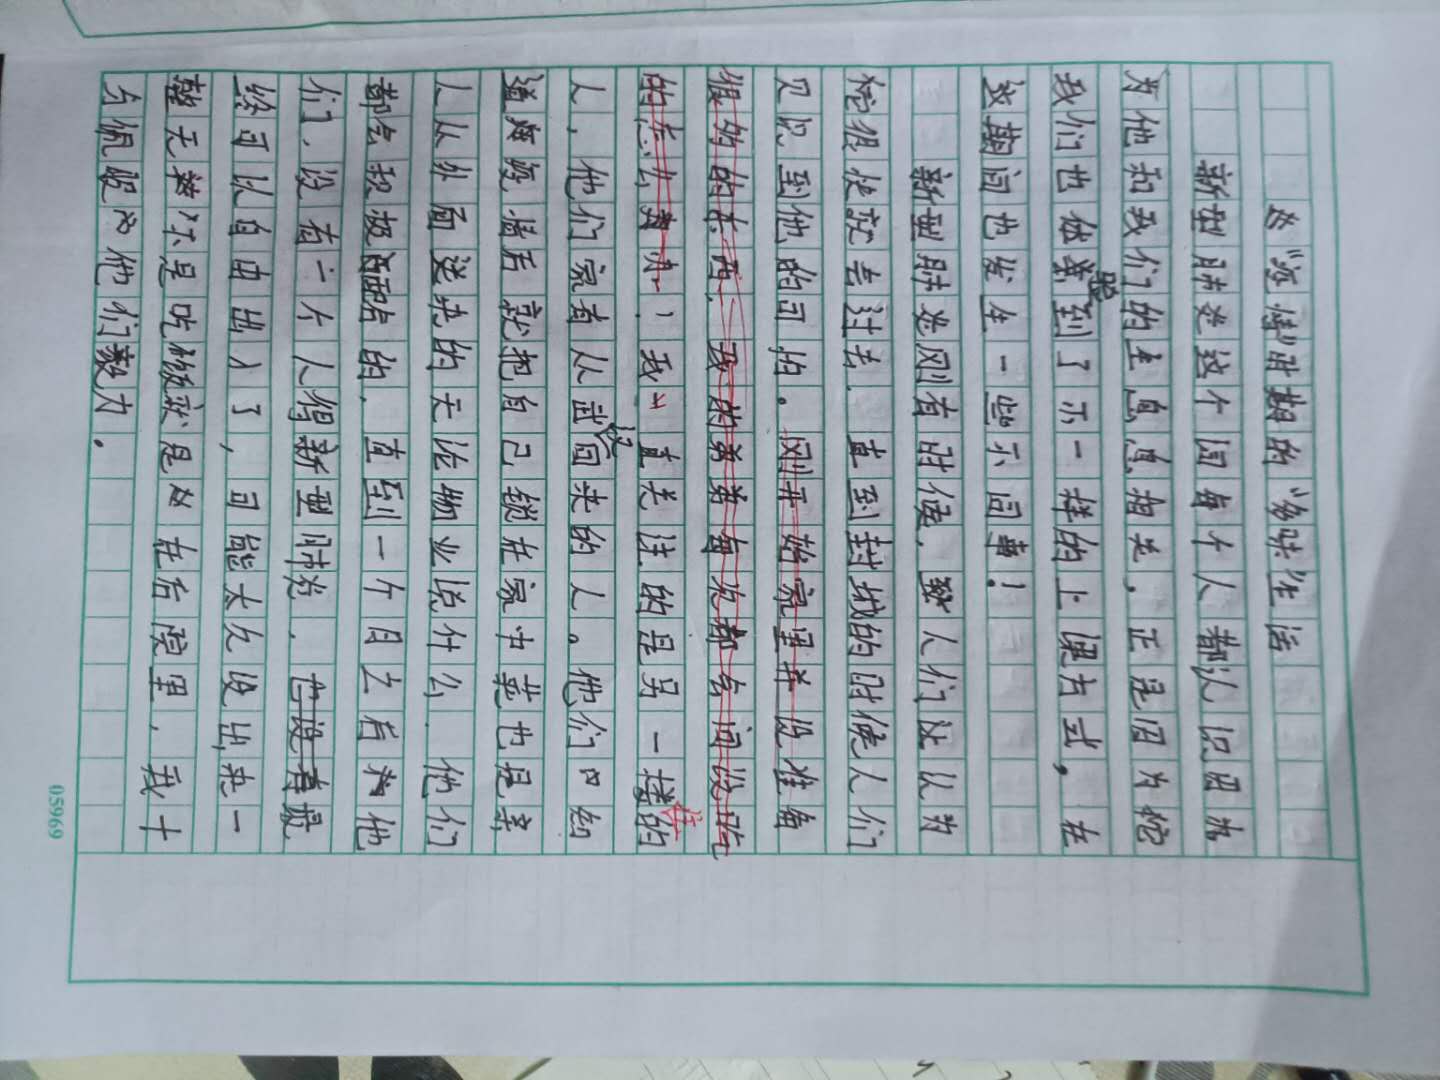 《疫情》时期的“多味”生活
新型肺炎这个国每个人都认识因为
为他和我们的生息息相关，正是因为蛇
我们也体验到了不一样的上课方式，在
这期间也发生一些不同事！
新型肺炎刚有时候，人们还认为
很快就会过去，直到封城的时候人们
见识到他的可怕。刚开始家里并没准备
假的的东西，我的弟弟每次都会问没吃
的怎么办！我一直关注的是另一楼的
人，他们家有从武汉回来的人。他们
返城后就把自己锁在家中
人从外面送来的无论物业说什么，他们
都会积极配合的，直到一个月之后他
们，没有一个人得新型肺炎，也没有最
终可以自由出入了，可能太久没出来一
整天不是吃饭就是在后院里，我十
分佩服他们毅力。
05969